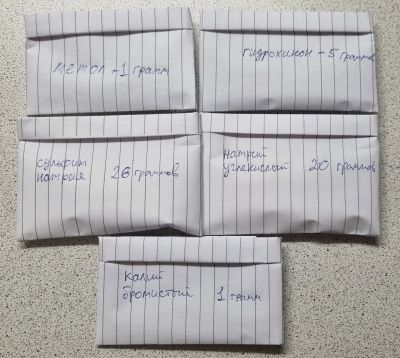 метол - 1 грамм
гидрохинон - 5 граммов
сульфит
натрия 26 граммов
натрий
углекислый 20 граммов
калий
бромистый 1 грамм